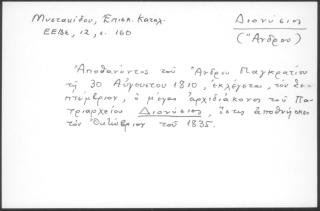 Μυστακίδου, Επισκ. Κατάλ.
ΕΕΒΣ, 12, σ. 160
Διονύσιος
("Ανδρου)
Ἀποθανόντος τοῦ Ἄνδρου Παγκρατίου
τῇ 30 Αὐγούστου 1810, ἐκλέγεται, τὸν Σε-
πτέμβριον, ὁ μέγας ἀρχιδιάκονος τοῦ Πα-
τριαρχείου Διονύσιος, ὅστις ἀπέθνησκε
τὸν Ὀκτώβριον τοῦ 1835.